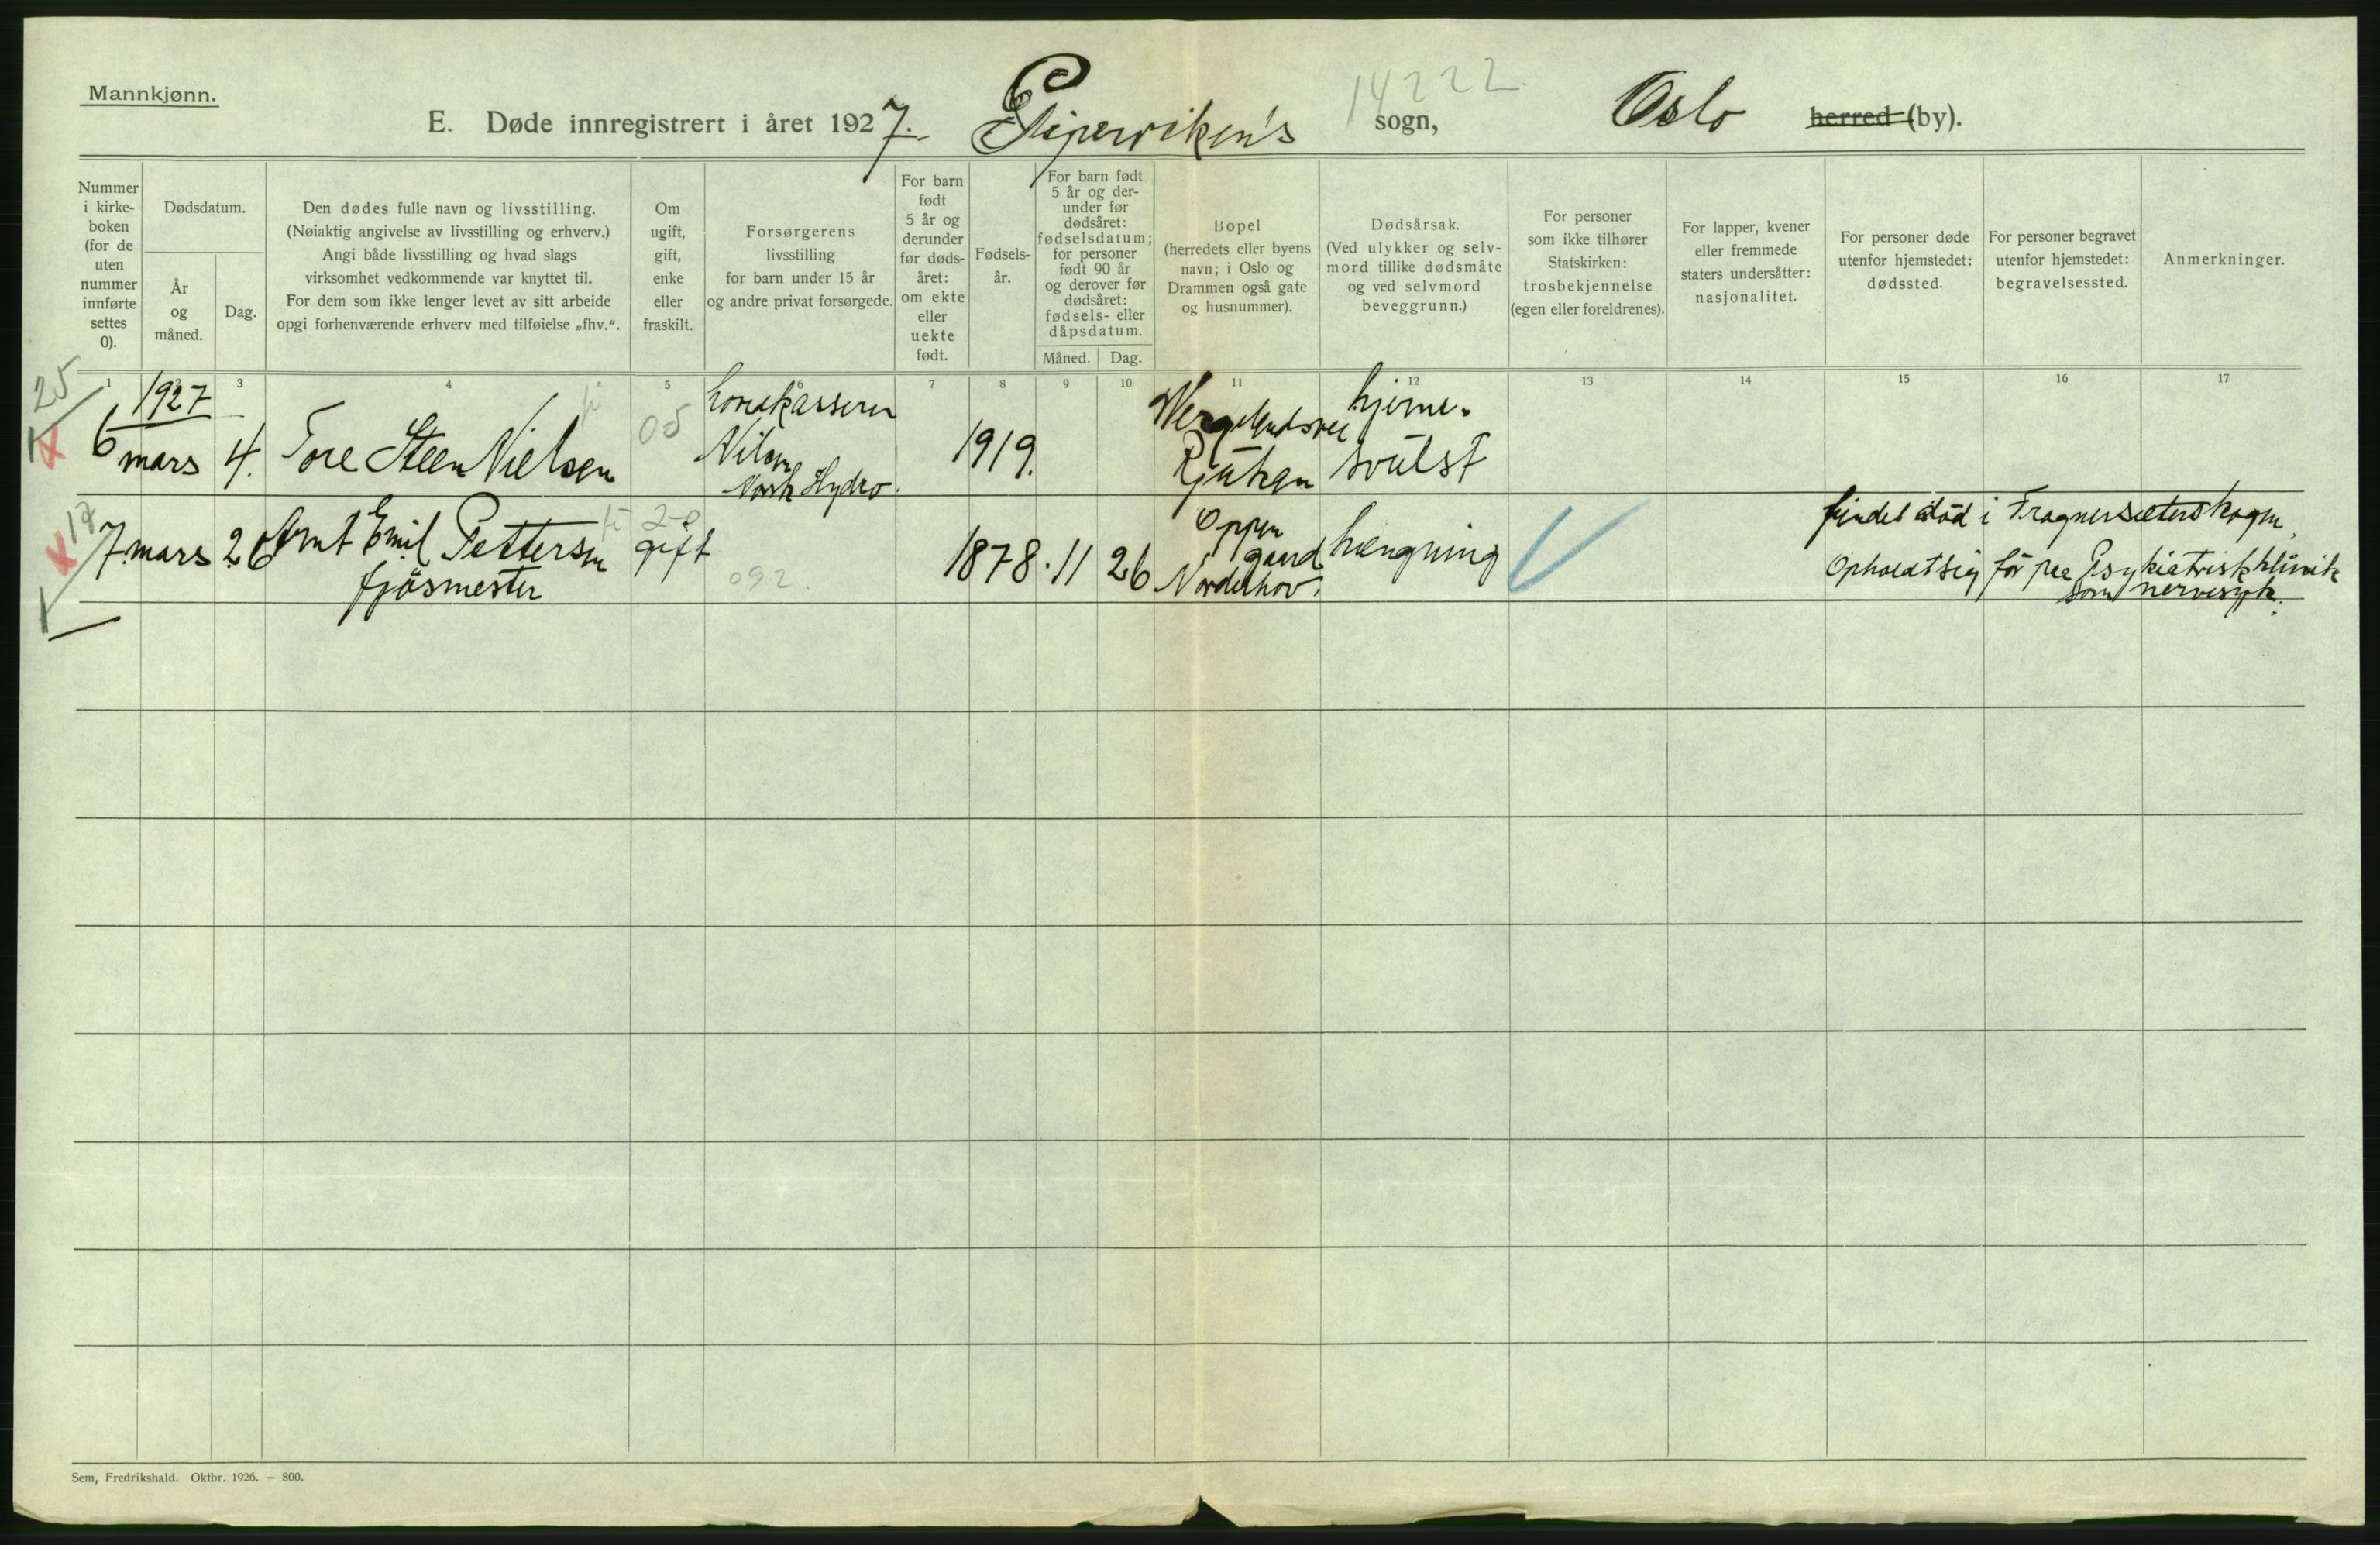 Mannkjønn.
E. Døde innregistrert i året 1927. Pipervikens sogn, Oslo herred (by).
14222
Nummer
i kirke-
boken
(for de
uten
nummer
innførte
settes
0).
Dødsdatum.
År
og
måned.
Dag.
Den dødes fulle navn og livsstilling.
(Nøiaktig angivelse av livsstilling og erhverv.)
Angi både livsstilling og hvad slags
virksomhet vedkommende var knyttet til.
For dem som ikke lenger levet av sitt arbeide
opgi forhenværende erhverv med tilføielse „fhv.“.
Om
ugift,
gift,
enke
eller
fraskilt.
Forsørgerens
livsstilling
for barn under 15 år
og andre privat forsørgede.
For barn
født
5 år og
derunder
før døds-
året:
om ekte
eller
uekte
født.
Fødsels-
år.
For barn født
5 år og der-
under før
dødsåret:
fødselsdatum;
for personer
født 90 år
og derover før
dødsåret:
fødsels- eller
dåpsdatum.
Måned. Dag.
Bopel
(herredets eller byens
navn; i Oslo og
Drammen også gate
og husnummer).
Dødsårsak.
(Ved ulykker og selv-
mord tillike dødsmåte
og ved selvmord
beveggrunn.)
For personer
som ikke tilhører
Statskirken:
trosbekjennelse
(egen eller foreldrenes).
For lapper, kvener
eller fremmede
staters undersåtter:
nasjonalitet.
For personer døde
utenfor hjemstedet:
dødssted.
For personer begravet
utenfor hjemstedet:
begravelsessted.
Anmerkninger.
1 2 3 4 5 6 7 8 9 10 11 12 13 14 15 16 17
25
1927
6 mars 4. Tore Steen Nielsen
05
Norsk Hydro.
1919.
Wergelandsvei
Rjukan
hjerne-
svulst
17
7. mars 26 Arnt Emil Pettersen
fjösmester
20
gift
092
1878. 11 26
Oppen
gaard
Norderhov.
hængning
findet död i Frognersæterskogen,
Opholdt sig för paa Psykiatrisk klinik
som nervesyk.
Sem, Fredrikshald. Oktbr. 1926. – 800.